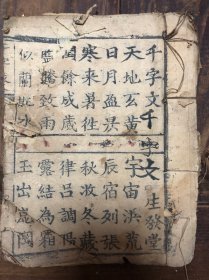 千字文千字文
生發堂
天地玄黃宇宙洪荒
日月盈昃辰宿列張
寒来暑往秋收冬藏
閏餘成歲律吕調陽
騰致雨露結為霜
似蘭斯水玉出崑岡